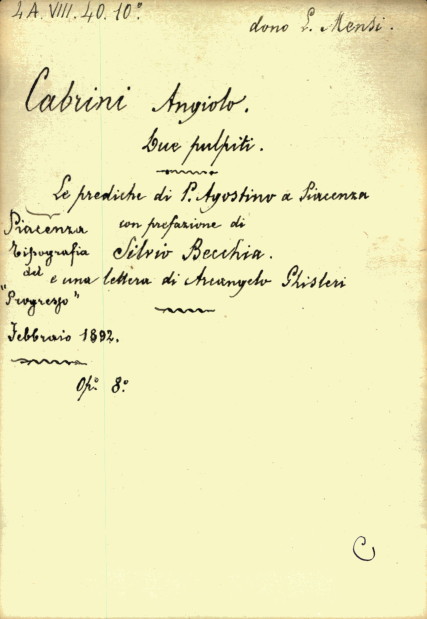 4A. VIII. 40. 10°.
dono L. Mensi.
Cabrini Angiolo.
Due pulpiti.
Le prediche di P. Agostino a Piacenza
con prefazione di
Silvio Becchia.
e una lettera di Arcangelo Ghisleri
Piacenza
Tipografia
del
"Progresso"
Febbraio 1892.
Op.° 8.°
C